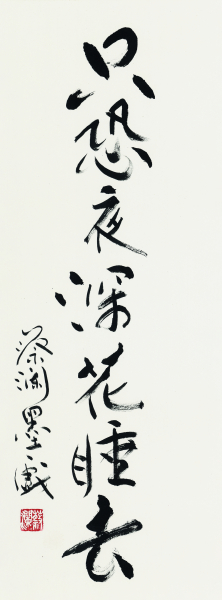 只恐夜深花睡去
蔡澜墨戏